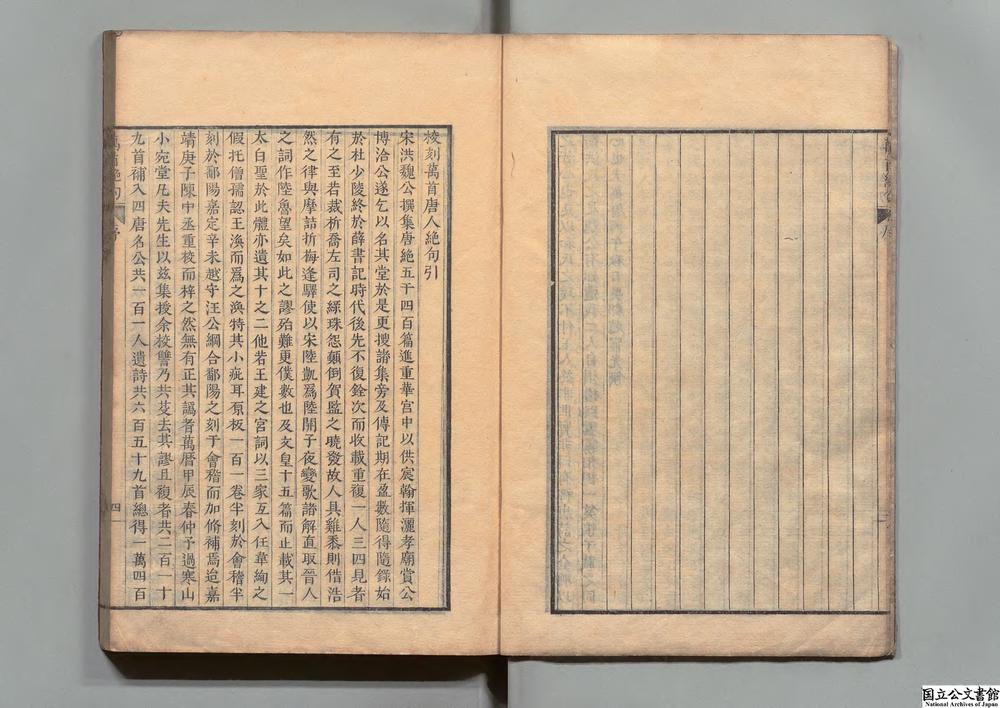 挍刻萬首唐人絶句引
宋洪魏公撰集唐絶五千四百篇進重華宫中以供宸翰揮灑孝廟賞公
博洽公遂乞以名其堂於是更搜諸集旁及傳記期在盈數隨得隨錄始
於杜少陵終於薛書記時代後先不復銓次而收載重復一人三四見者
有之至若裁祈喬左司之綠珠怨顛倒賀監之曉發故人具雞黍則借浩
然之律與摩詰折梅逢驛使以宋陸凱爲陸闓子夜變歌諸解直取晉人
之詞作陸魯望矣如此之謬殆難更僕數也及文皇十五篇而止載其一
太白聖於此體亦遺其十之二他若王建之宮詞以三家互入任華絢之
假托僧孺認王渙而爲之渙特其小疵耳原板一百一卷半刻於會稽半
刻於鄱陽嘉定辛未越守汪公綱合鄱陽之刻于會稽而加脩補焉迨嘉
靖庚子陳中丞重挍而梓之然無有正其譌者萬曆甲辰春仲予過寒山
小宛堂凡夫先生以兹集授余挍讐乃共芟去其謬且複者共二百一十
九首補入四唐名公共一百一人遺詩共六百五十九首總得一萬四百
序
四
国立公文書館
National Archives of Japan